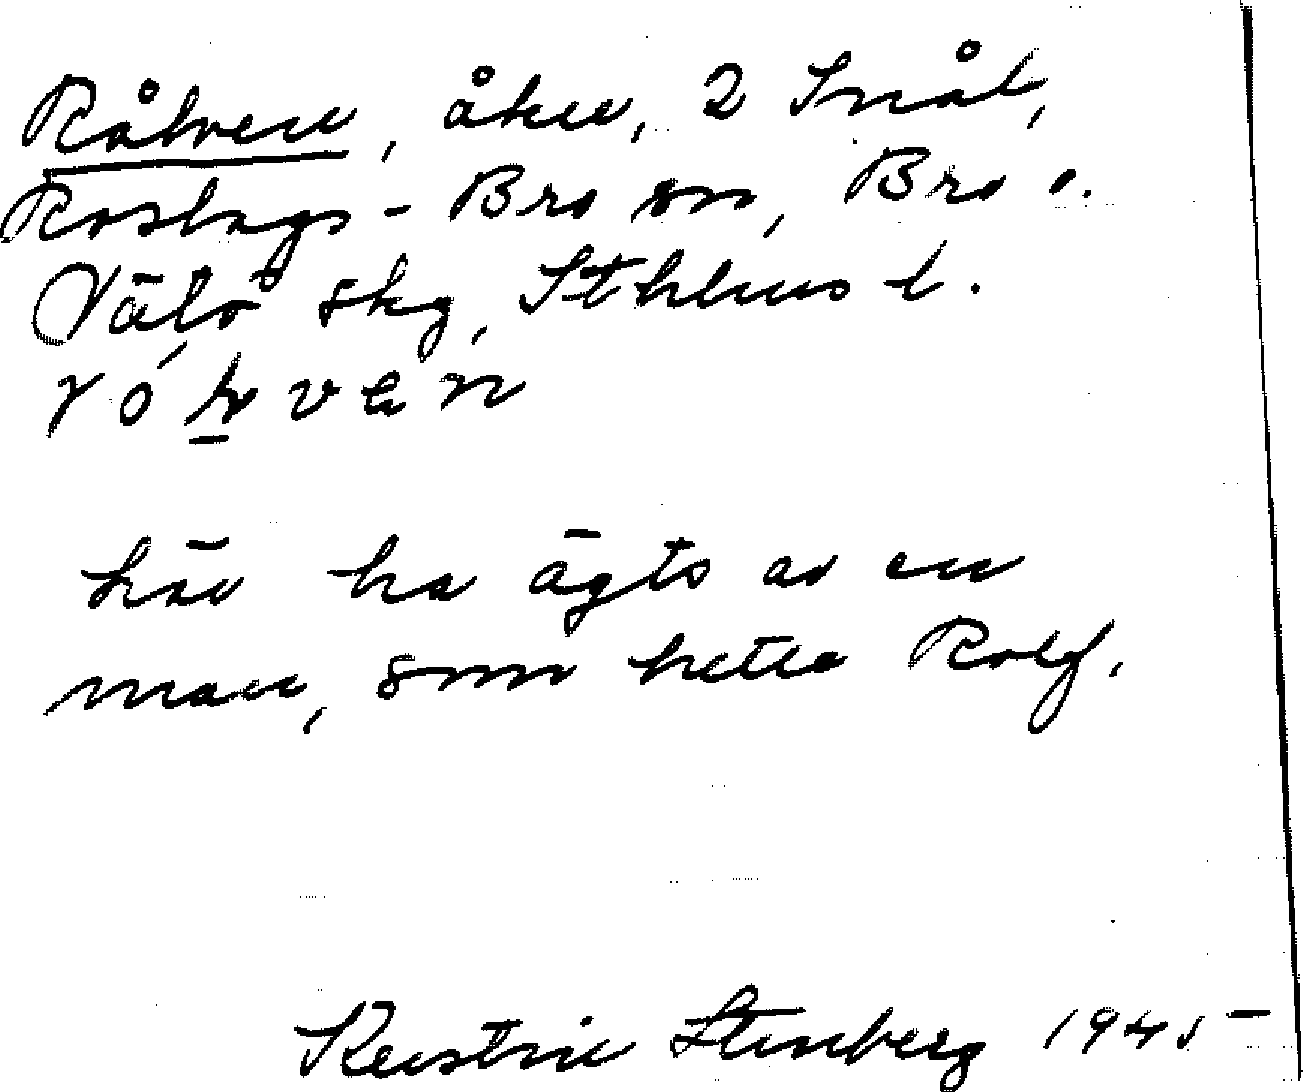 Rålven, åker, 2 Snåt,
Roslags-Bro sn, Bro o.
Vätö skg, Sthlms l.
Lär ha ägts av en
man, som hette Rolf.
Kerstin Stenberg 1945